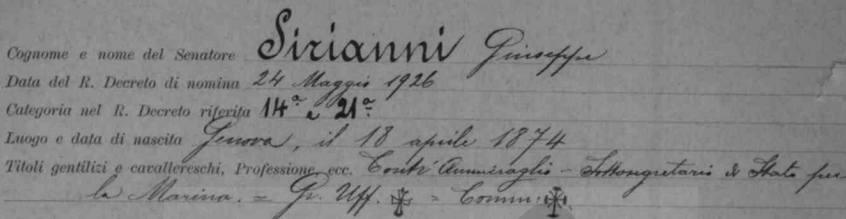 Cognome e nome del Senatore Sirianni Giuseppe
Data del R. Decreto di nomina 24 Maggio 1926
Categoria nel R. Decreto riferita 14ª e 21ª
Luogo e data di nascita Genova, il 18 aprile 1874
Titoli gentilizi e cavallereschi, Professione, ecc. Contr'Ammiraglio - Sottosegretario di Stato per
la Marina. = Gr. Uff. ✠ = Comm: ✠